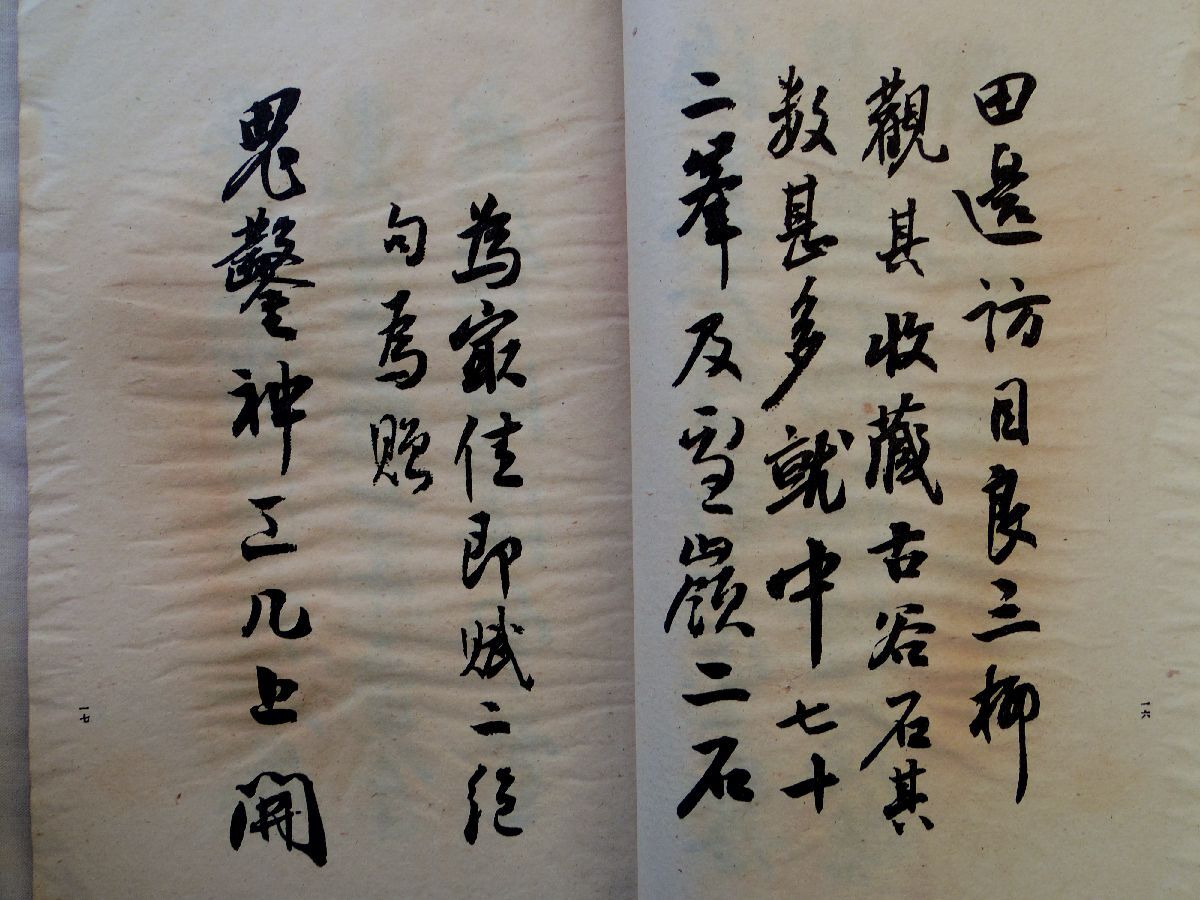 田邉訪目良三柳
觀其收藏古谷石其
数甚多就中七十
二峯及雪嶺二石
一六
為寂佳即賦二絶
句為贈
鬼鑿神工几上開
一七